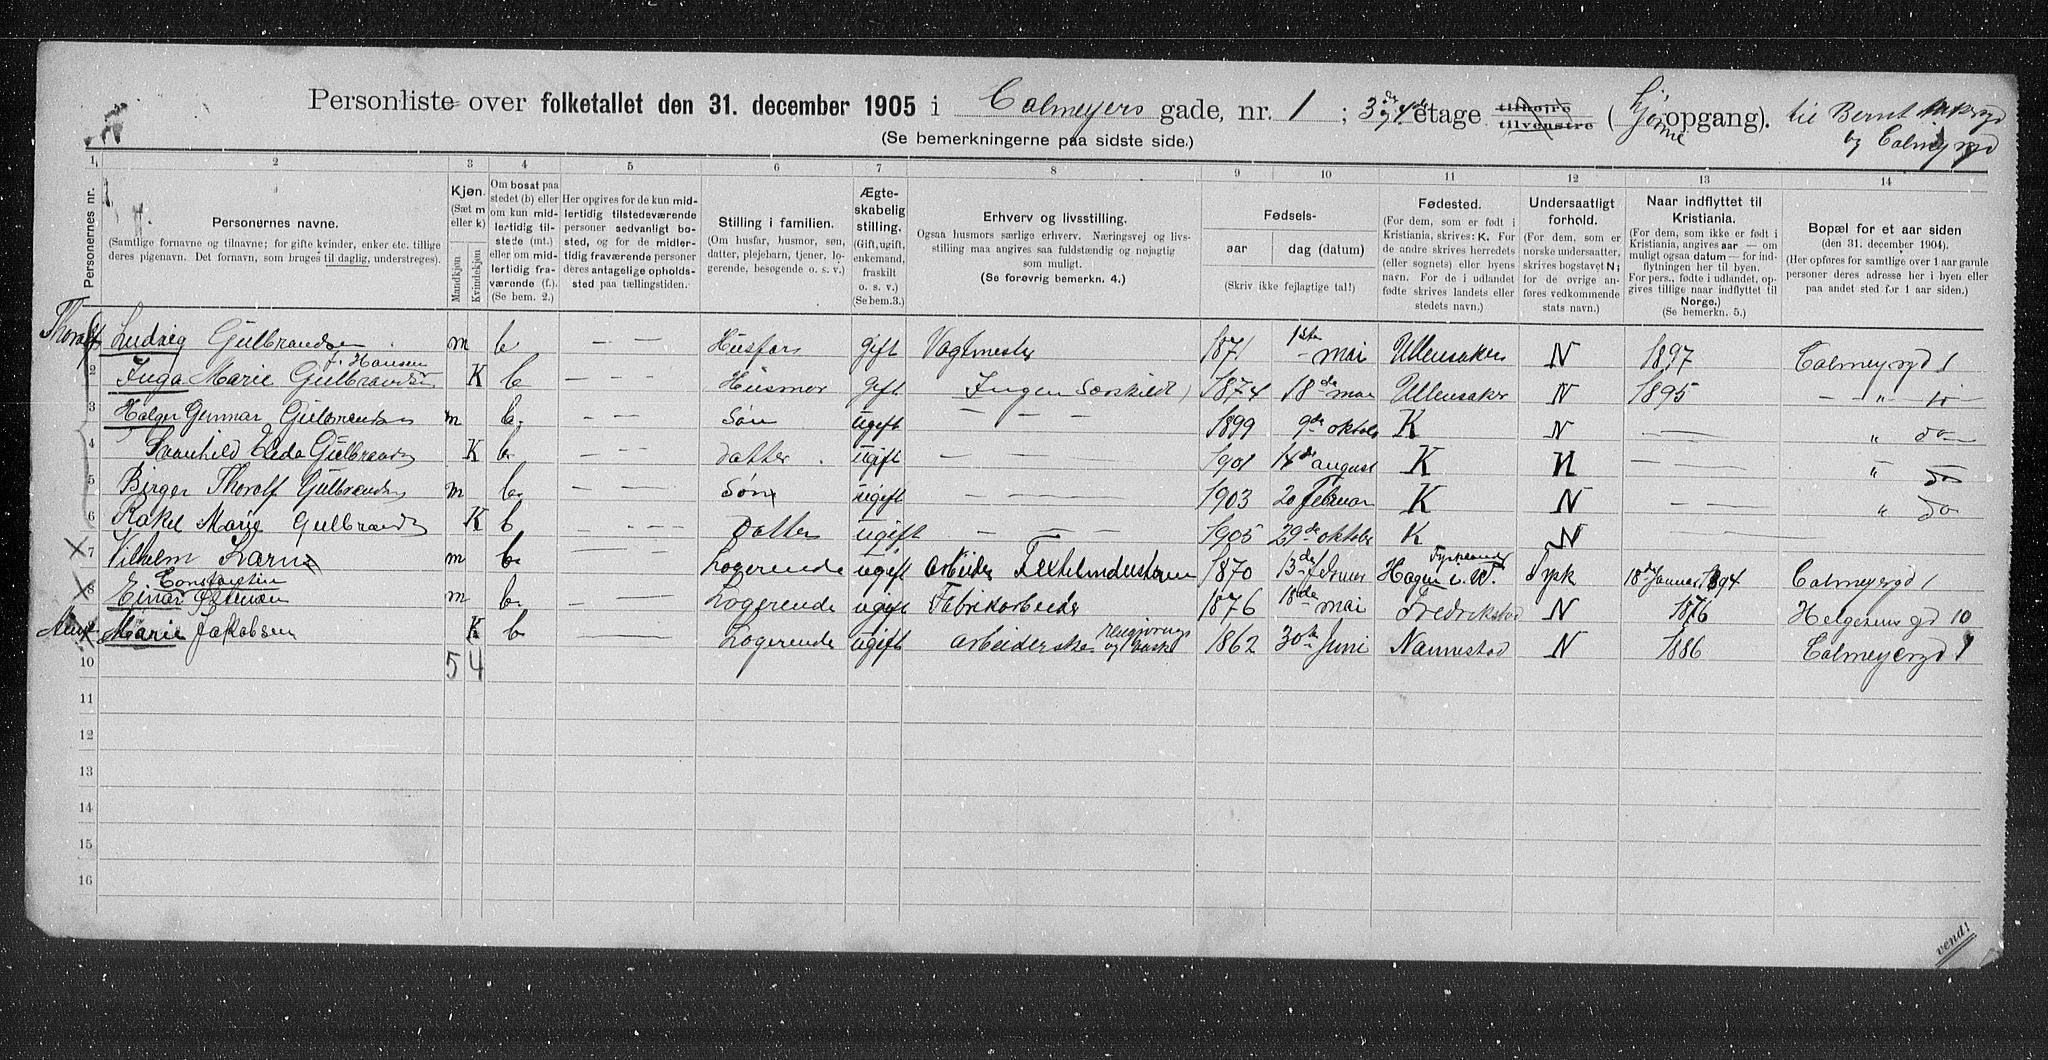 Personliste over folketallet den 31. december 1905 i Calmeyers gade, nr. 1 ; 3de 4de etage tilhøire tilvenstre ( Hjørne opgang). til Bernt Ankersgd
(Se bemerkningerne paa sidste side.) og Calmeyersgd
1 2 3 4 5 6 7 8 9 10 11 12 13 14
Personernes nr.
Personernes navne.
(Samtlige fornavne og tilnavne; for gifte kvinder, enker etc. tillige deres pigenavn. Det fornavn, som bruges til daglig, understreges).
Kjøn.
(Sæt m eller k)
Mandkjøn
Kvindekjøn
Om bosat paa stedet (b) eller om kun midlertidig tilstede (mt.) eller om midlertidig fraværende (f.) (Se bem. 2.)
Her opgives for de kun midlertidig tilstedeværende personer sedvanligt bosted, og for de midlertidig fraværende personer deres antagelige opholdssted paa tællingstiden.
Stilling i familien.
(Om husfar, husmor, søn, datter, plejebarn, tjener, logerende, besøgende o. s. v.)
Ægteskabelig stilling.
(Gift, ugift, enkemand, fraskilt o. s. v.)
(Se bem. 3.)
Erhverv og livsstilling.
Ogsaa husmors særlige erhverv. Næringsvej og livsstilling maa angives saa fuldstændig og nøjagtig som muligt.
(Se forøvrig bemerkn. 4.)
Fødsels-
aar
dag (datum)
(Skriv ikke fejlagtige tal!)
Fødested.
(For dem, som er født i Kristiania, skrives: K. For de andre skrives herredets (eller sognets) eller byens navn. For de i udlandet fødte skrives landets eller stedets navn.)
Undersaatligt forhold.
(For dem, som er norske undersaatter, skrives bogstavet N; for de øvrige anføres vedkommende stats navn.)
Naar indflyttet til Kristiania.
(For dem, som ikke er født i Kristiania, angives aar — om muligt ogsaa datum — for indflytningen her til byen. For pers., fødte i udlandet, opgives tillige naar indflyttet til Norge.)
(Se bemerkn. 5.)
Bopæl for et aar siden
(den 31. december 1904).
(Her opføres for samtlige over 1 aar gamle personer deres adresse her i byen eller paa andet sted for 1 aar siden.)
Thorolf Ludvig Gulbrandsen m b — — Husfar gift Vagtmester 1871 1ste mai Ullensaker N 1897 Calmeyersgd 1
f. Hansen
2 Inga Marie Gulbrandsen K b — — Husmor gift Ingen Særskildt 1874 18de mai Ullensaker N 1895 — " 10 —
3 Holger Gunnar Gulbrandsen m b. — — Søn ugift — — — 1899 9de oktobr K N — — " do —
4 Svanhild Elida Gulbrandsen K b — — datter ugift — — 1901 14de august K N — — " do
5 Birger Thorolf Gulbrandsen m b — — Søn ugift — — — 1903 20 Februar K N — — " do
6 Rakel Marie Gulbrandsen K b — — Datter ugift — — — 1905 29de oktobr K N — — " do
7 Vilhelm m b — — Logerende ugift Arbeider 1870 13de Hagen i. W. Tyskland Tysk 18de Januar 1894 Calmeyersgd 1
Constantin
8 Einar m b. — — Logerende ugift Fabrikarbeider 1876 18de mai Fredrikstad N 1876 Helgesens gd 10
9 Marie Jakobsen K b — — Logerende ugift Arbeiderske Rengjørings og Vask 1862 30te Juni Nannestad N 1886 Calmeyersgd 1
10 5 4
11
12
13
14
15
16
vend!